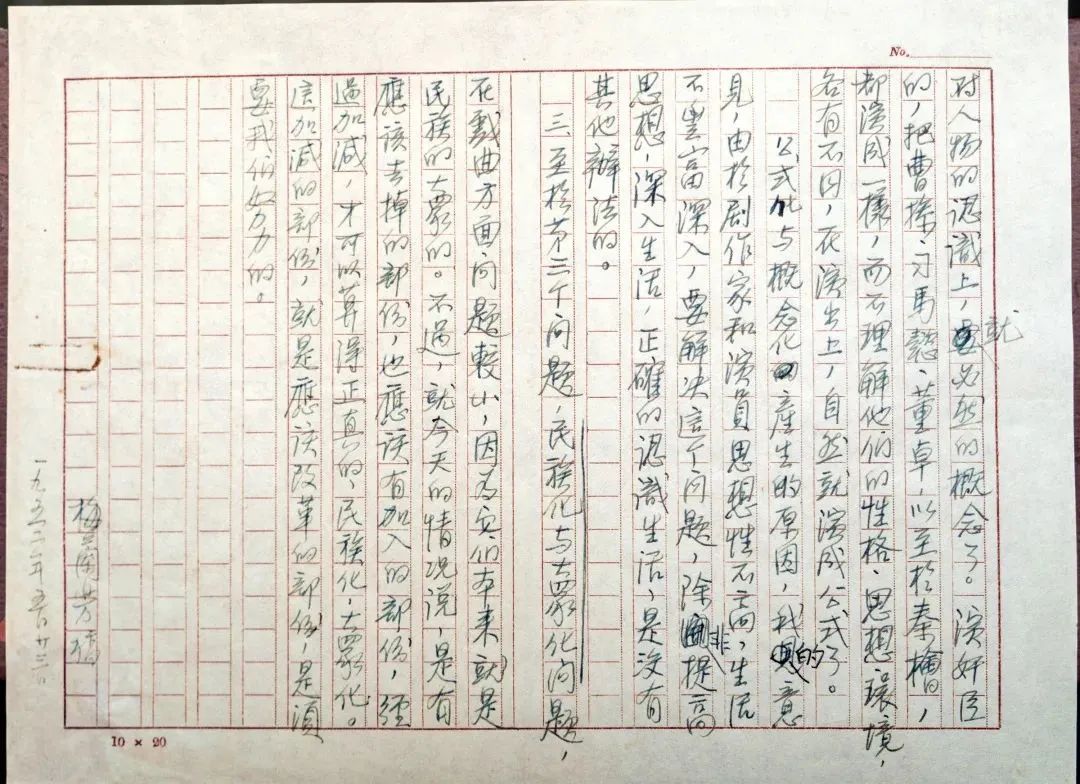 No.
对人物的认識上，就必然的概念了。演奸臣
的，把曹操、司馬懿、董卓，以至於秦檜，
都演成一樣，而不理解他们的性格、思想、環境，
各有不同，在演出上，自然就演成公式了。
公式化与概念化產生的原因，我的意
見，由於剧作家和演員思想性不高，生活
不豐富深入，要解决這个问题，除非提高
思想，深入生活，正確的认識生活，是没有
其他辦法的。
三、至於第三个问题，民族化与大衆化问题，
在戲曲方面问题較小，因为它们本来就是
民族的大衆的。不过，就今天的情况说，是有
應該去掉的部份，也應该有加入的部份，經
過加减，才可以算得正真的，民族化，大衆化。
這加减的部份，就是應该改革的部份，是須
要我们努力的。
梅蘭芳稿
一九五二年 廿三日
10 × 20